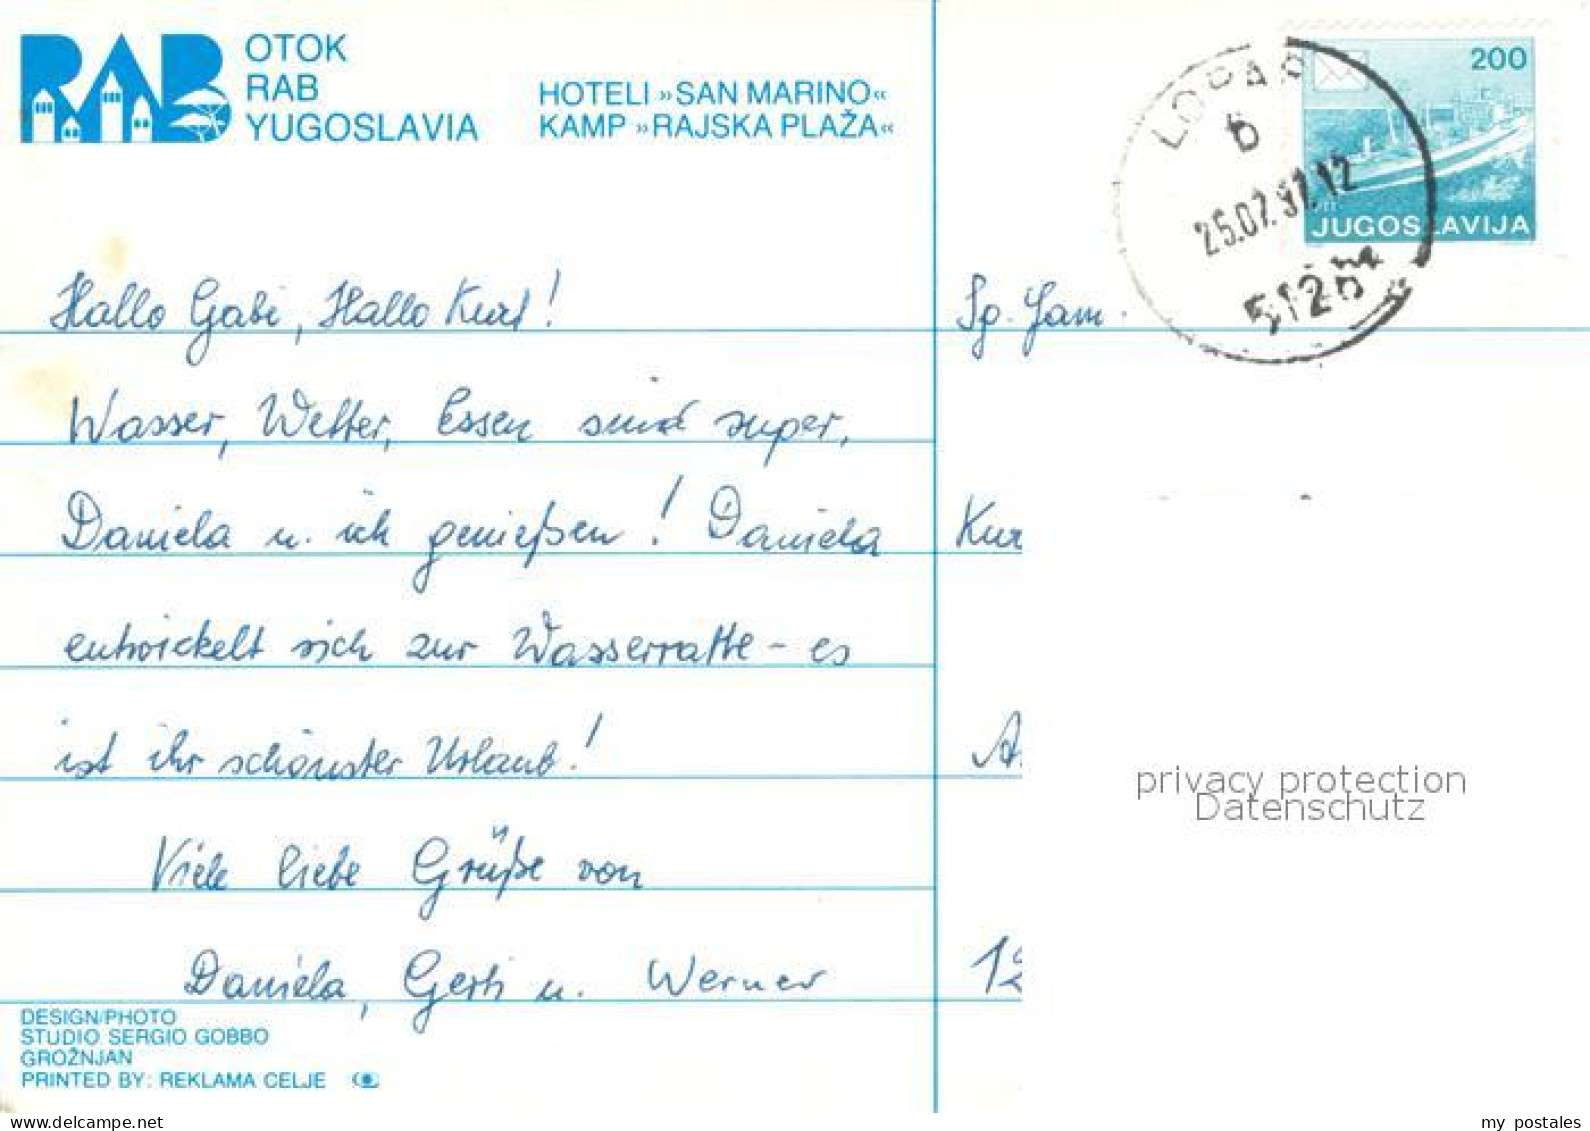 RAB
OTOK
RAB
YUGOSLAVIA
HOTELI »SAN MARINO«
KAMP »RAJSKA PLAŽA«
200
JUGOSLAVIJA
LOPAR
b
25.07.87.12
Hallo Gabi, Hallo Kurt!
Wasser, Wetter, Essen sind super,
Daniela u. ich genießen! Daniela
entwickelt sich zur Wasserratte – es
ist ihr schönster Urlaub!
Viele liebe Grüße von
Daniela, Gerti u. Werner
Sg. Fam.
Kur
A
12
privacy protection
Datenschutz
DESIGN/PHOTO
STUDIO SERGIO GOBBO
GROŽNJAN
PRINTED BY: REKLAMA CELJE
www.delcampe.net
my_postales